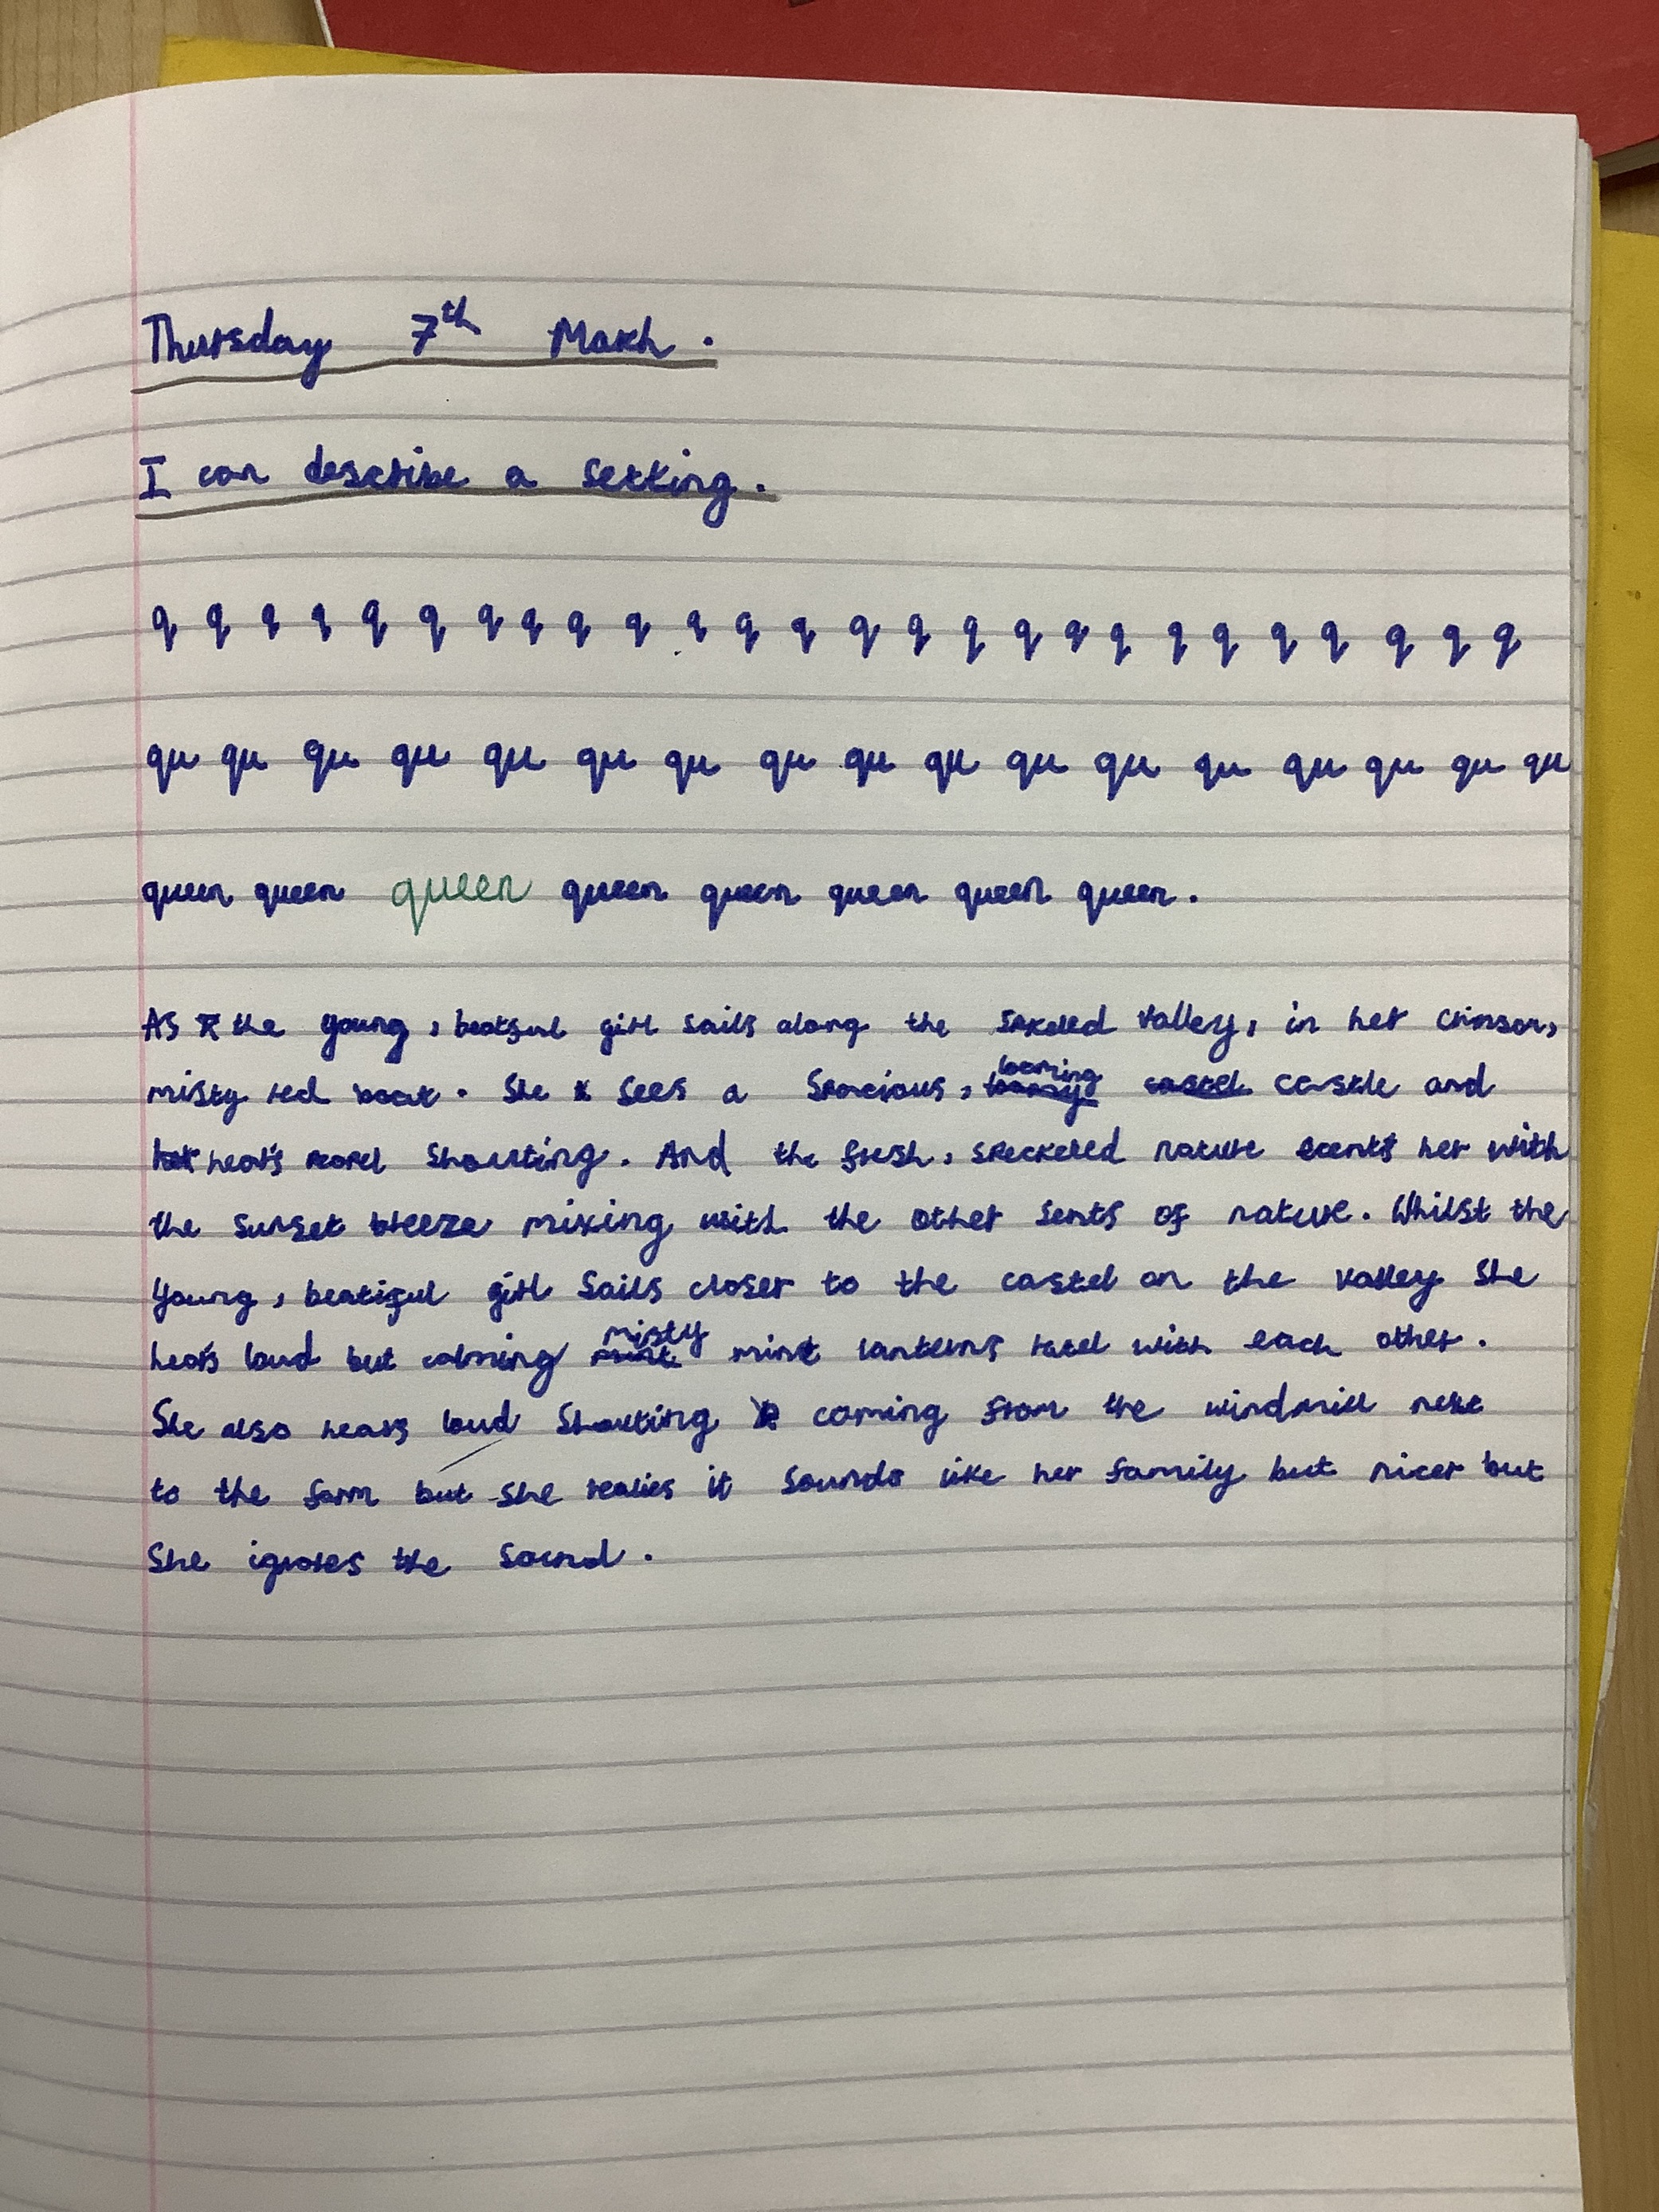 Thursday 7th March.
I can describe a setting.
q q q q q q q q q q q q q q q q q q q q q q q q q q
qu qu qu qu qu qu qu qu qu qu qu qu qu qu qu qu qu
queen queen queen queen queen queen queen queen.
As the young, beatful girl sails along the valley, in her crimson,
misty red boat. She sees a spacious, looming castle and
hears peopel shouting. And the fresh, speckeled nature scents her with
the sunset breeze mixing with the other sents of nature. Whilst the
young, beatiful girl sails closer to the castel on the valley she
hears loud but calming misty mint lanterns ratel with each other.
She also hears loud shouting coming from the windmill next
to the farm but she realies it sounds like her family but nicer but
she ignores the sound.